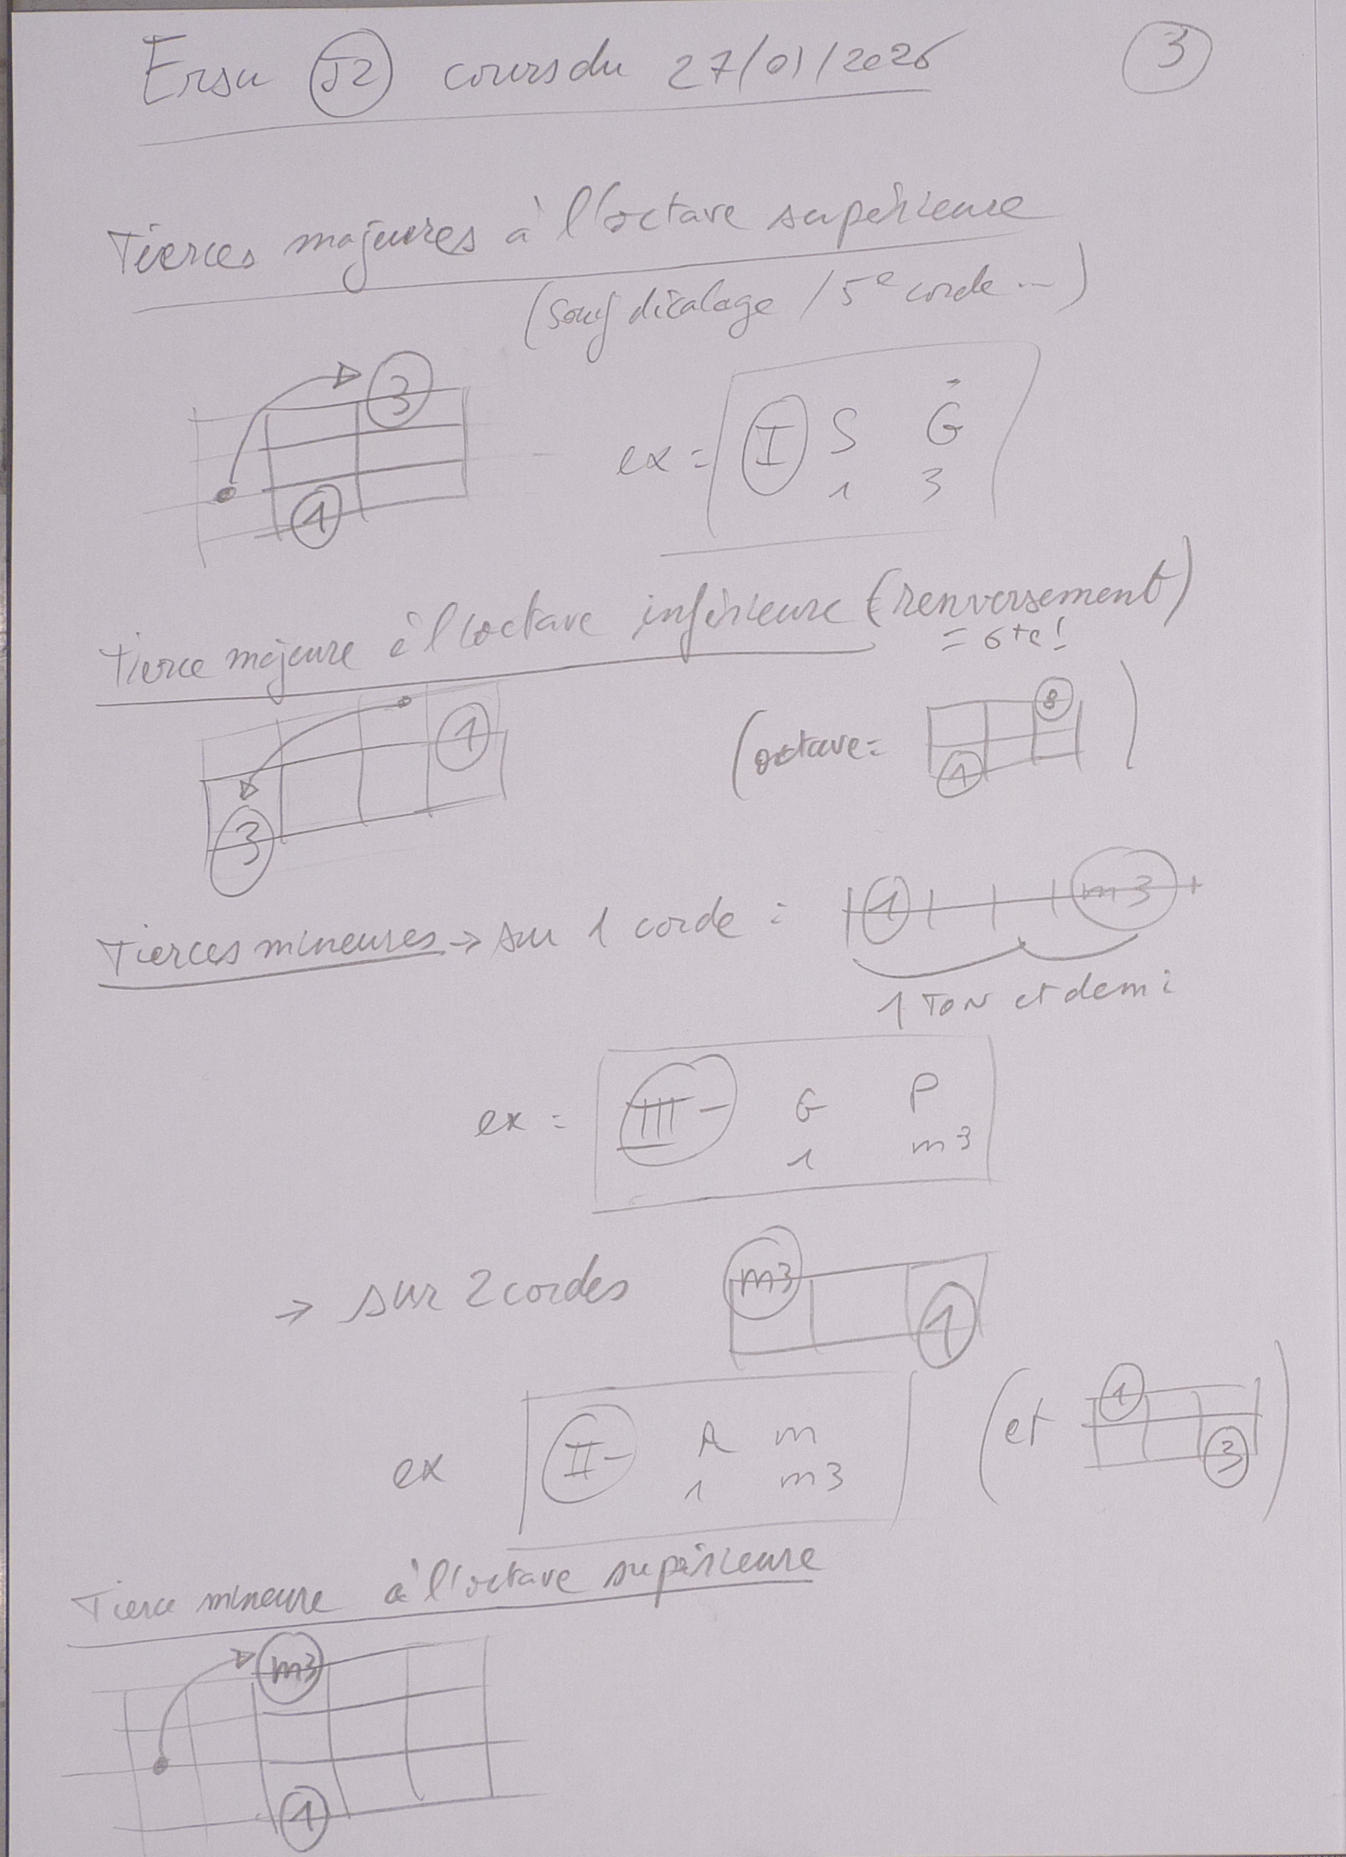 Ersu 52 cours du 27/01/2026 3
Tierces majeures à l'octave supérieure
(sauf décalage / 5e corde ...)
3
1
ex = I S Ġ
1 3
Tierce majeure à l'octave inférieure (renversement)
= 6te !
1
3
(octave = 8 )
1
Tierces mineures → sur 1 corde : 1 m3
1 TON et demi
ex = III- G P
1 m3
→ sur 2 cordes m3
1
ex II- R m
1 m3
(et 1 )
3
Tierce mineure à l'octave supérieure
m3
1